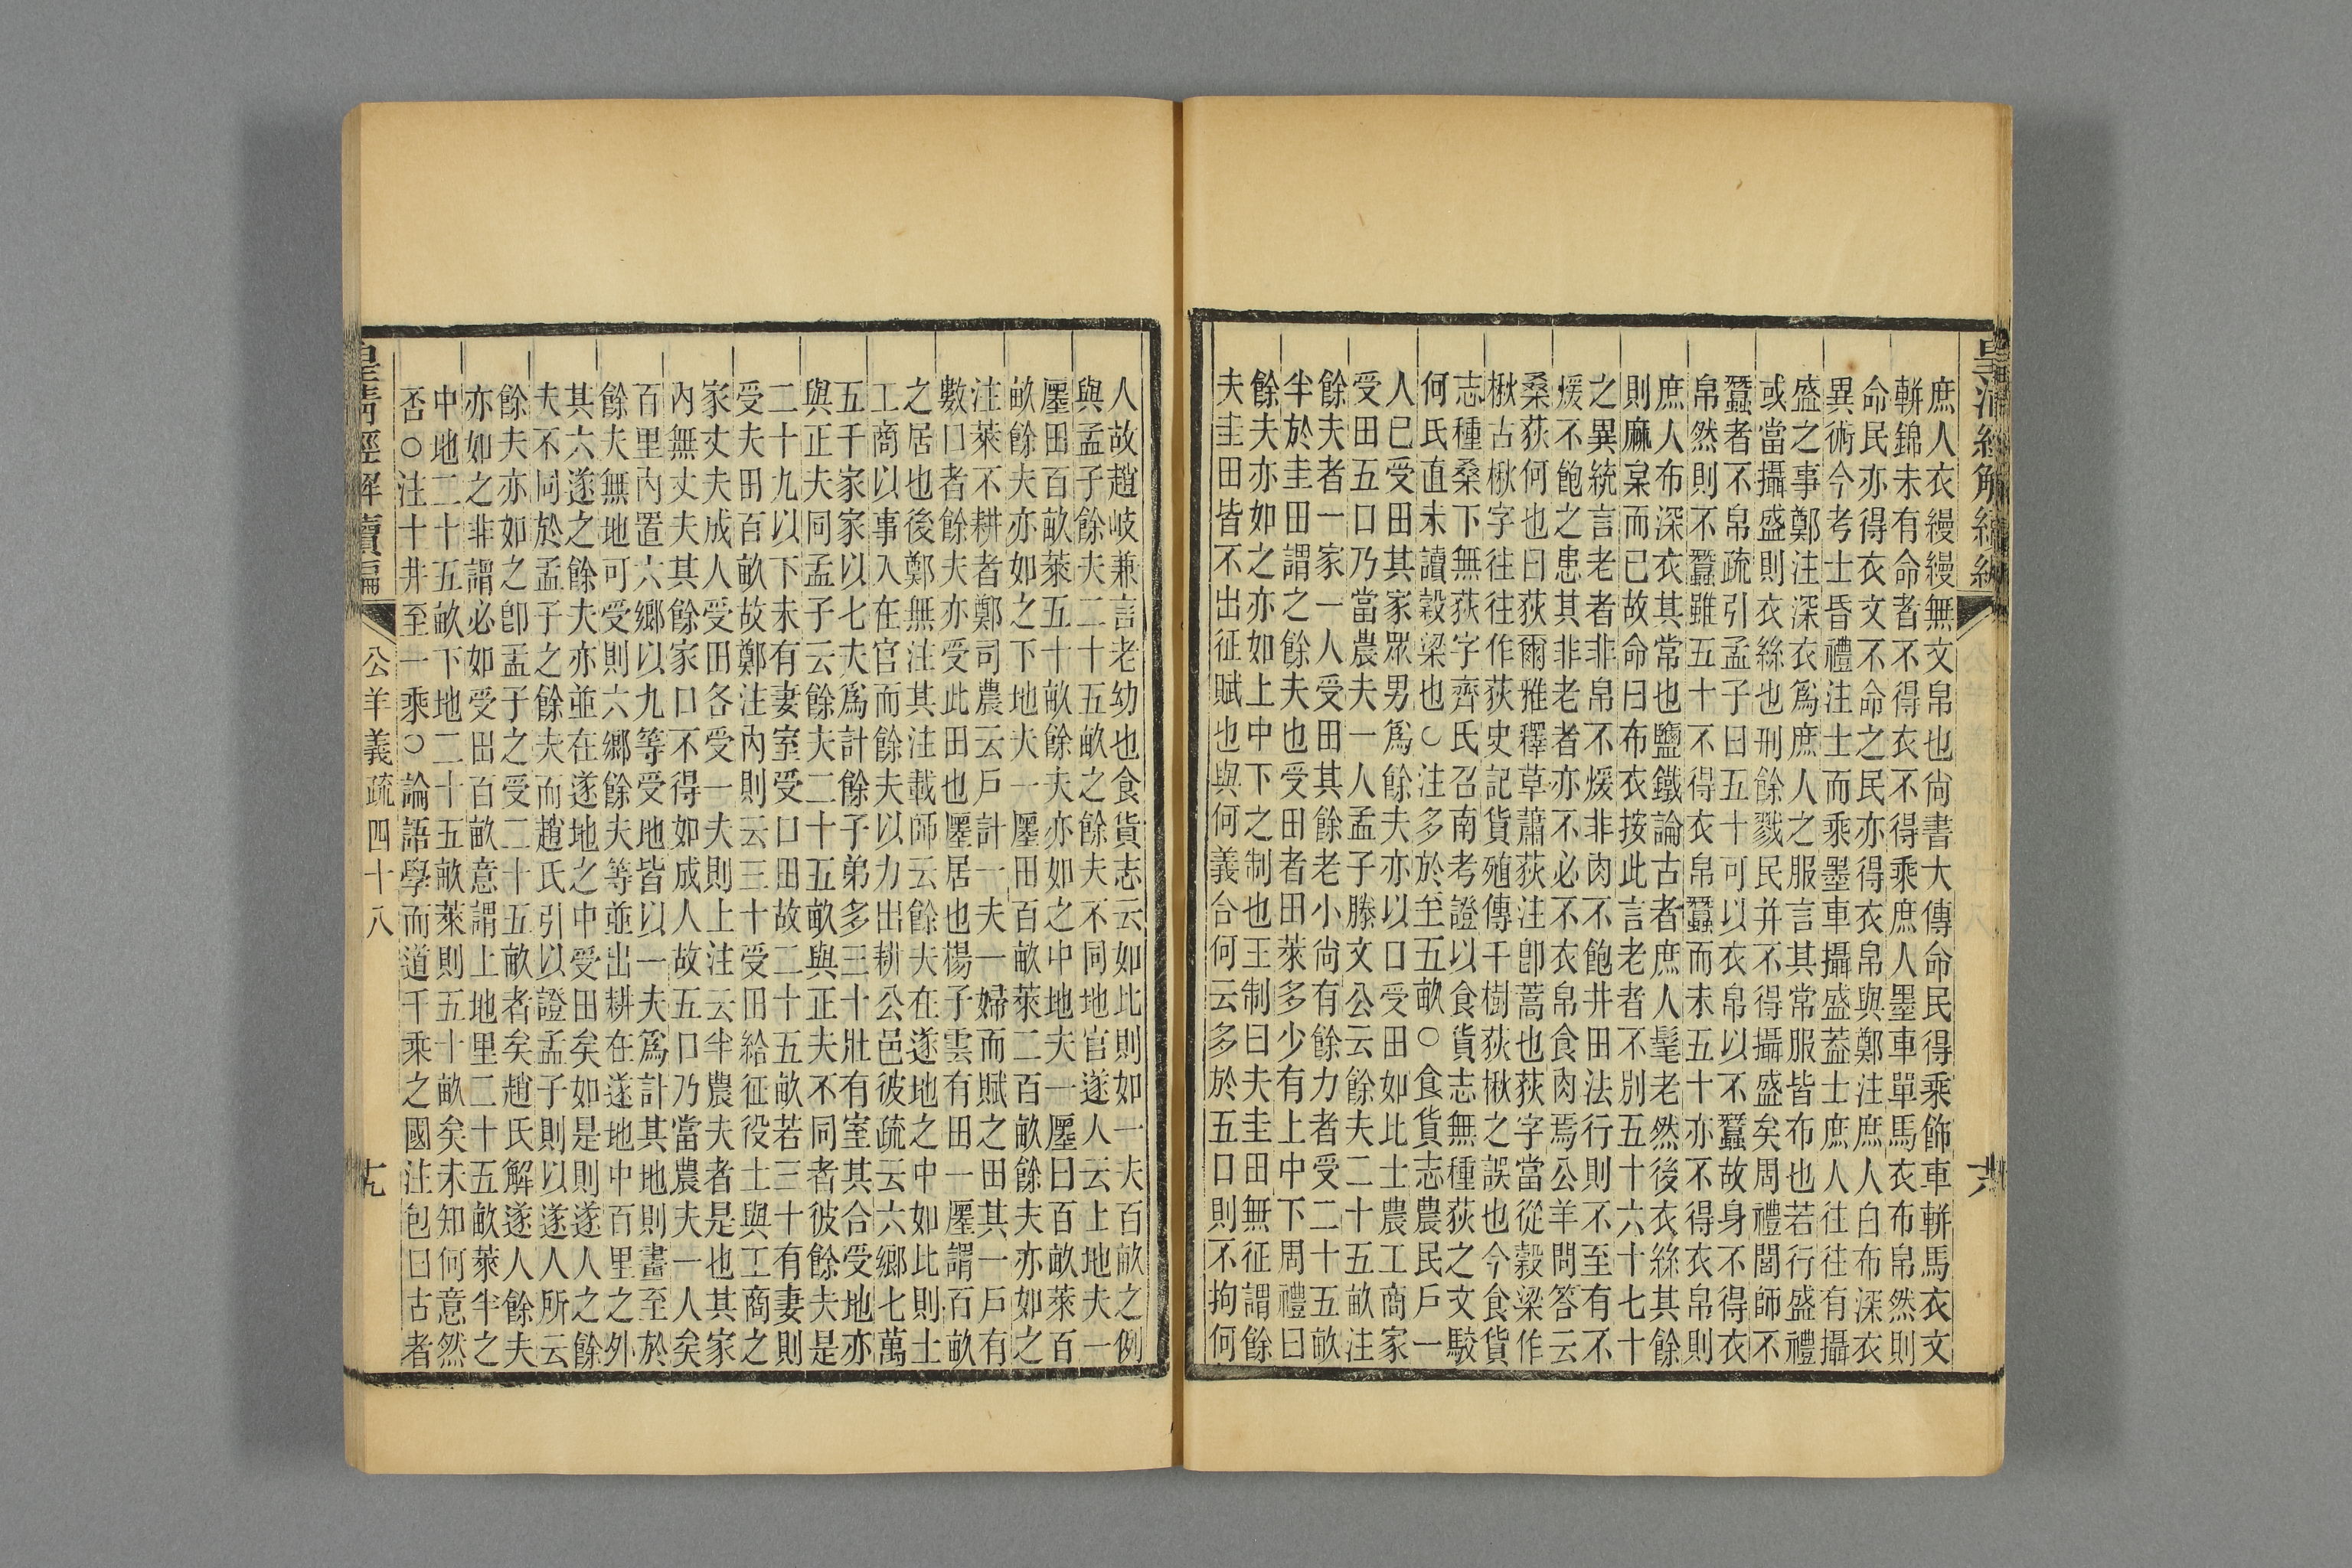 皇清經解續編
庶人衣縵縵無文帛也尚書大傳命民得乘飾車軿馬衣文
軿錦未有命者不得衣不得乘庶人墨車單馬衣布帛然則
命民亦得衣文不命之民亦得衣帛與鄭注庶人白布深衣
異術今考士昏禮注士而乘墨車攝盛蓋士庶人往往有攝
盛之事鄭注深衣爲庶人之服言其常服皆布也若行盛禮
或當攝盛則衣絲也刑餘戮民并不得攝盛矣周禮閭師不
蠶者不帛疏引孟子曰五十可以衣帛以不蠶故身不得衣
帛然則不蠶雖五十不得衣帛蠶而未五十亦不得衣帛則
庶人布深衣其常也鹽鐵論古者庶人髦老然後衣絲其餘
則麻枲而已故命曰布衣按此言老者不別五十六十七十
之異統言老者非帛不煖非肉不飽井田法行則不至有不
煖不飽之患其非老者亦不必不衣帛食肉焉公羊問答云
桑荻何也曰荻爾雅釋草蕭荻注卽蒿也荻字當從穀梁作
楸古楸字往往作荻史記貨殖傳千樹荻楸之誤也今食貨
志種桑下無荻字齊氏召南考證以食貨志無種荻之文駮
何氏直未讀穀梁也○注多於至五畝○食貨志農民戶一
人巳受田其家眾男爲餘夫亦以口受田如比士農工商家
受田五口乃當農夫一人孟子滕文公云餘夫二十五畝注
餘夫者一家一人受田其餘老小尚有餘力者受二十五畝
半於圭田謂之餘夫也受田者田萊多少有上中下周禮曰
餘夫亦如之亦如上中下之制也王制曰夫圭田無征謂餘
夫圭田皆不出征賦也與何義合何云多於五口則不拘何
人故趙岐兼言老幼也食貨志云如比則如一夫百畝之例
與孟子餘夫二十五畝之餘夫不同地官遂人云上地夫一
廛田百畝萊五十畝餘夫亦如之中地夫一廛曰百畝萊百
畝餘夫亦如之下地夫一廛田百畝萊二百畝餘夫亦如之
注萊不耕者鄭司農云戶計一夫一婦而賦之田其一戶有
數口者餘夫亦受此田也廛居也楊子雲有田一廛謂百畝
之居也後鄭無注其注載師云餘夫在遂地之中如比則士
工商以事入在官而餘夫以力出耕公邑彼疏云六鄉七萬
五千家家以七夫爲計餘子弟多三十壯有室其合受地亦
與正夫同孟子云餘夫二十五畝與正夫不同者彼餘夫是
二十九以下未有妻室受口田故二十五畝若三十有妻則
受夫田百畝故鄭注內則云三十受田給征役士與工商之
家丈夫成人受田各受一夫則上注云半農夫者是也其家
內無丈夫其餘家口不得如成人故五口乃當農夫一人矣
百里內置六鄉以九等受地皆以一夫爲計其地則盡至於
餘夫無地可受則六鄉餘夫等並出耕在遂地中百里之外
其六遂之餘夫亦並在遂地之中受田矣如是則遂人之餘
夫不同於孟子之餘夫而趙氏引以證孟子則以遂人所云
餘夫亦如之卽孟子之受二十五畝者矣趙氏解遂人餘夫
亦如之非謂必如受田百畝意謂上地里二十五畝萊半之
中地二十五畝下地二十五畝萊則五十畝矣未知何意然
否○注十井至一乘○論語學而道千乘之國注包曰古者
皇清經解續編 公羊義疏四十八